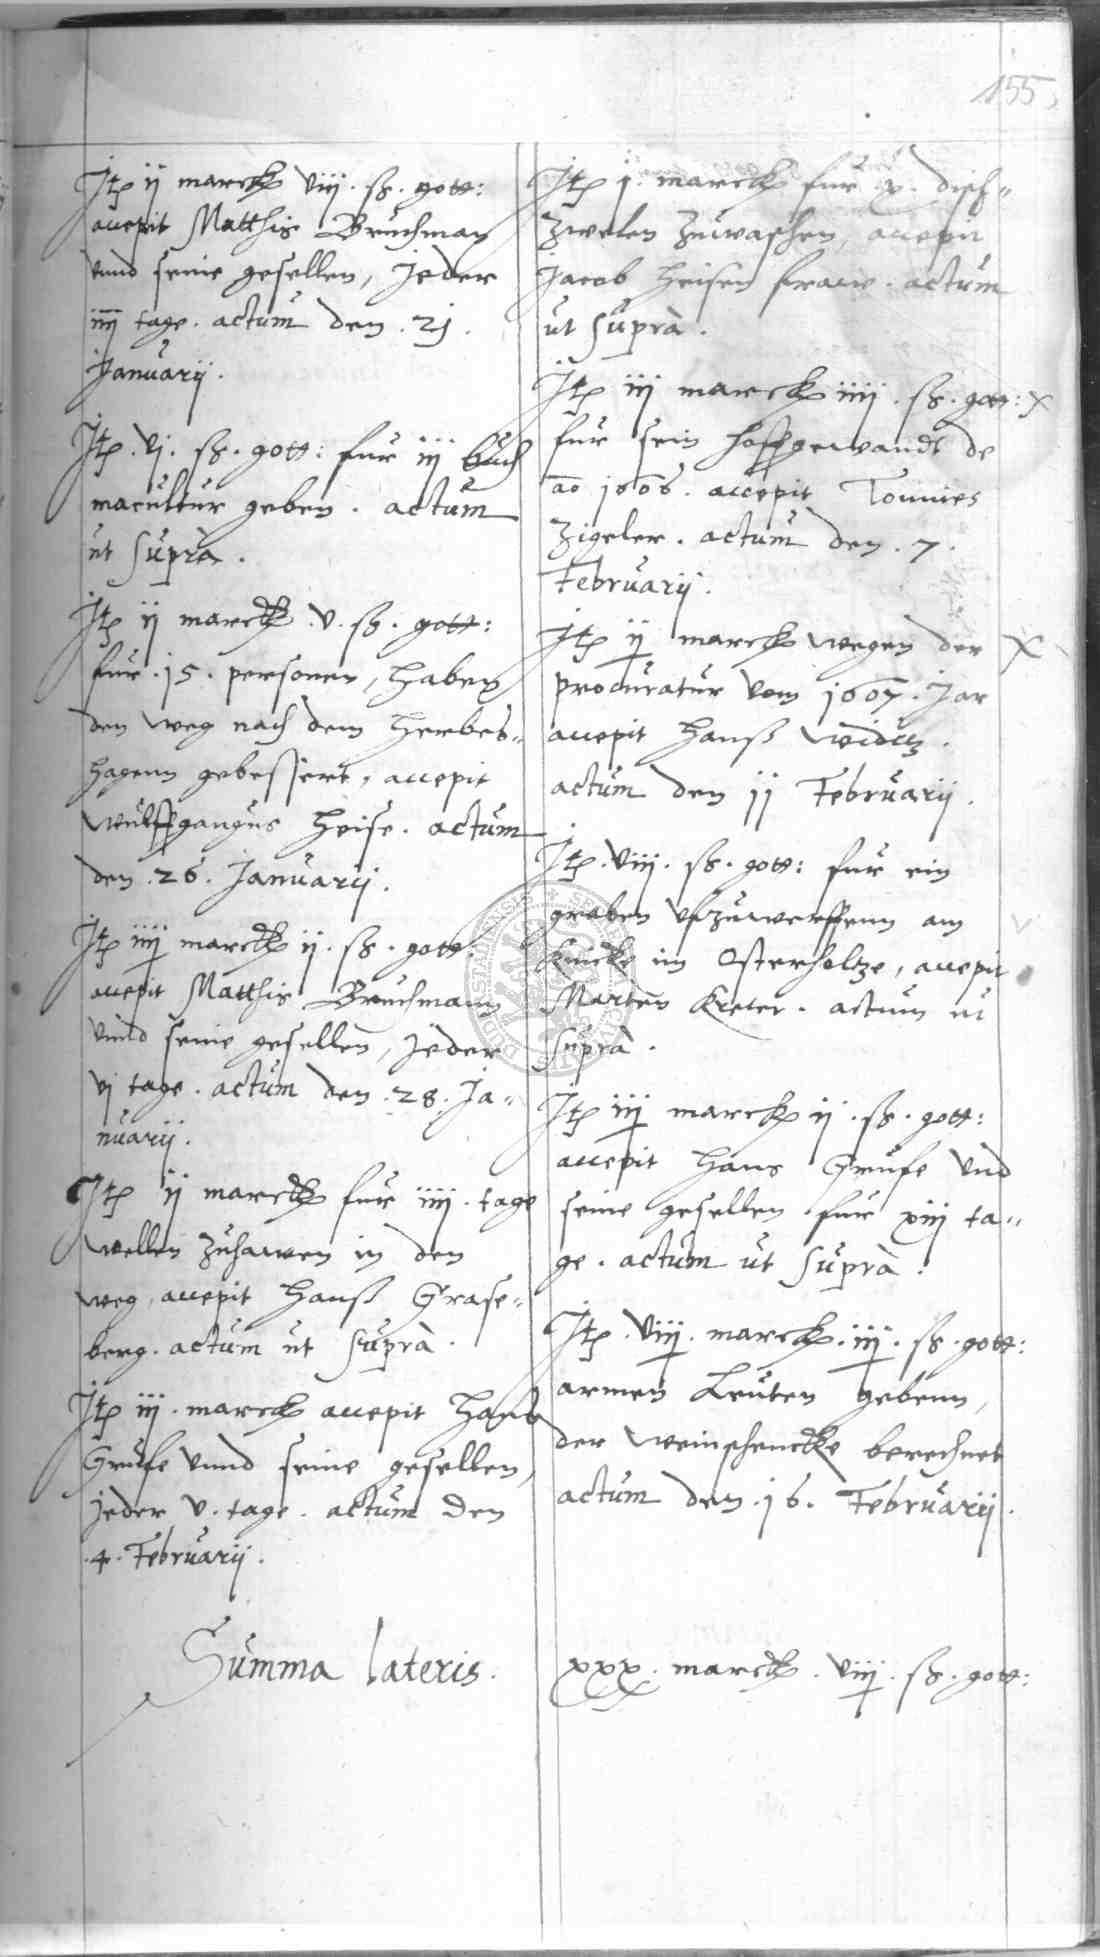 155
Itē ij marck viij . ß . gott:
accepit Matthis Bruchman
vnnd seine gesellen, Jeder
iiij tage . actum den . 21 .
Januarij .
Itē . vj . ß . gott: fur iij buch
macultur geben . actum
ut Suprà .
Itē ij marck . v . ß . gott:
fur . 15 . personen, haben
den weg nach dem Herbes„
hagenn gebessert, accepit
Wulffgangus Heise . actum
den . 26 . Januarij .
Itē iiij marck ij . ß . gott:
accepit Matthis Bruchmann
vnnd seine gesellen, Jeder
vj tage . actum den . 28 . Ja„
nuarij .
Itē ij marck fur iiij . tage
wellen zuhawen in den
weg, accepit Hanß Grase„
berg . actum ut Suprà .
Itē iij . marck accepit Hans
Grufe vnnd seine gesellen,
jeder v . tage . actum den
. 4 . Februarij .
Itē j . marck fur x . disch„
zwelen zuwaschen, accepit
Jacob Heisen fraw . actum
ut Suprà .
Itē iij marck iiij . ß . gott: x
fur sein hoffgewandt de
ao 1606 . accepit Tonnies
Zigeler . actum den . 7 .
Februarij .
Itē ij marck wegen der x
procuratur vom 1607 . Jar
accepit Hanß .
actum den 11 Februarij .
Itē . viij . ß . gott: fur ein
graben vfzuwerffenn am
Knicke im Osterholtze, accepit
Marten Kreter . actum ut
Suprà .
Itē iij marck ij . ß . gott:
accepit Hans Grufe vnd
seine gesellen fur xiij ta„
ge . actum ut Suprà .
Itē . viij . marck . iij . ß . gott:
armen Leuten gebenn,
der weinschencke berechnet
actum den . 16 . Februarij .
Summa lateris . xxx . marck . viij . ß . gott: